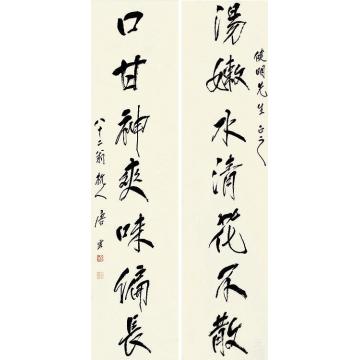 明先生正之
湯嫩水清花不散
口甘神爽味偏長
八十二翁杭人唐雲